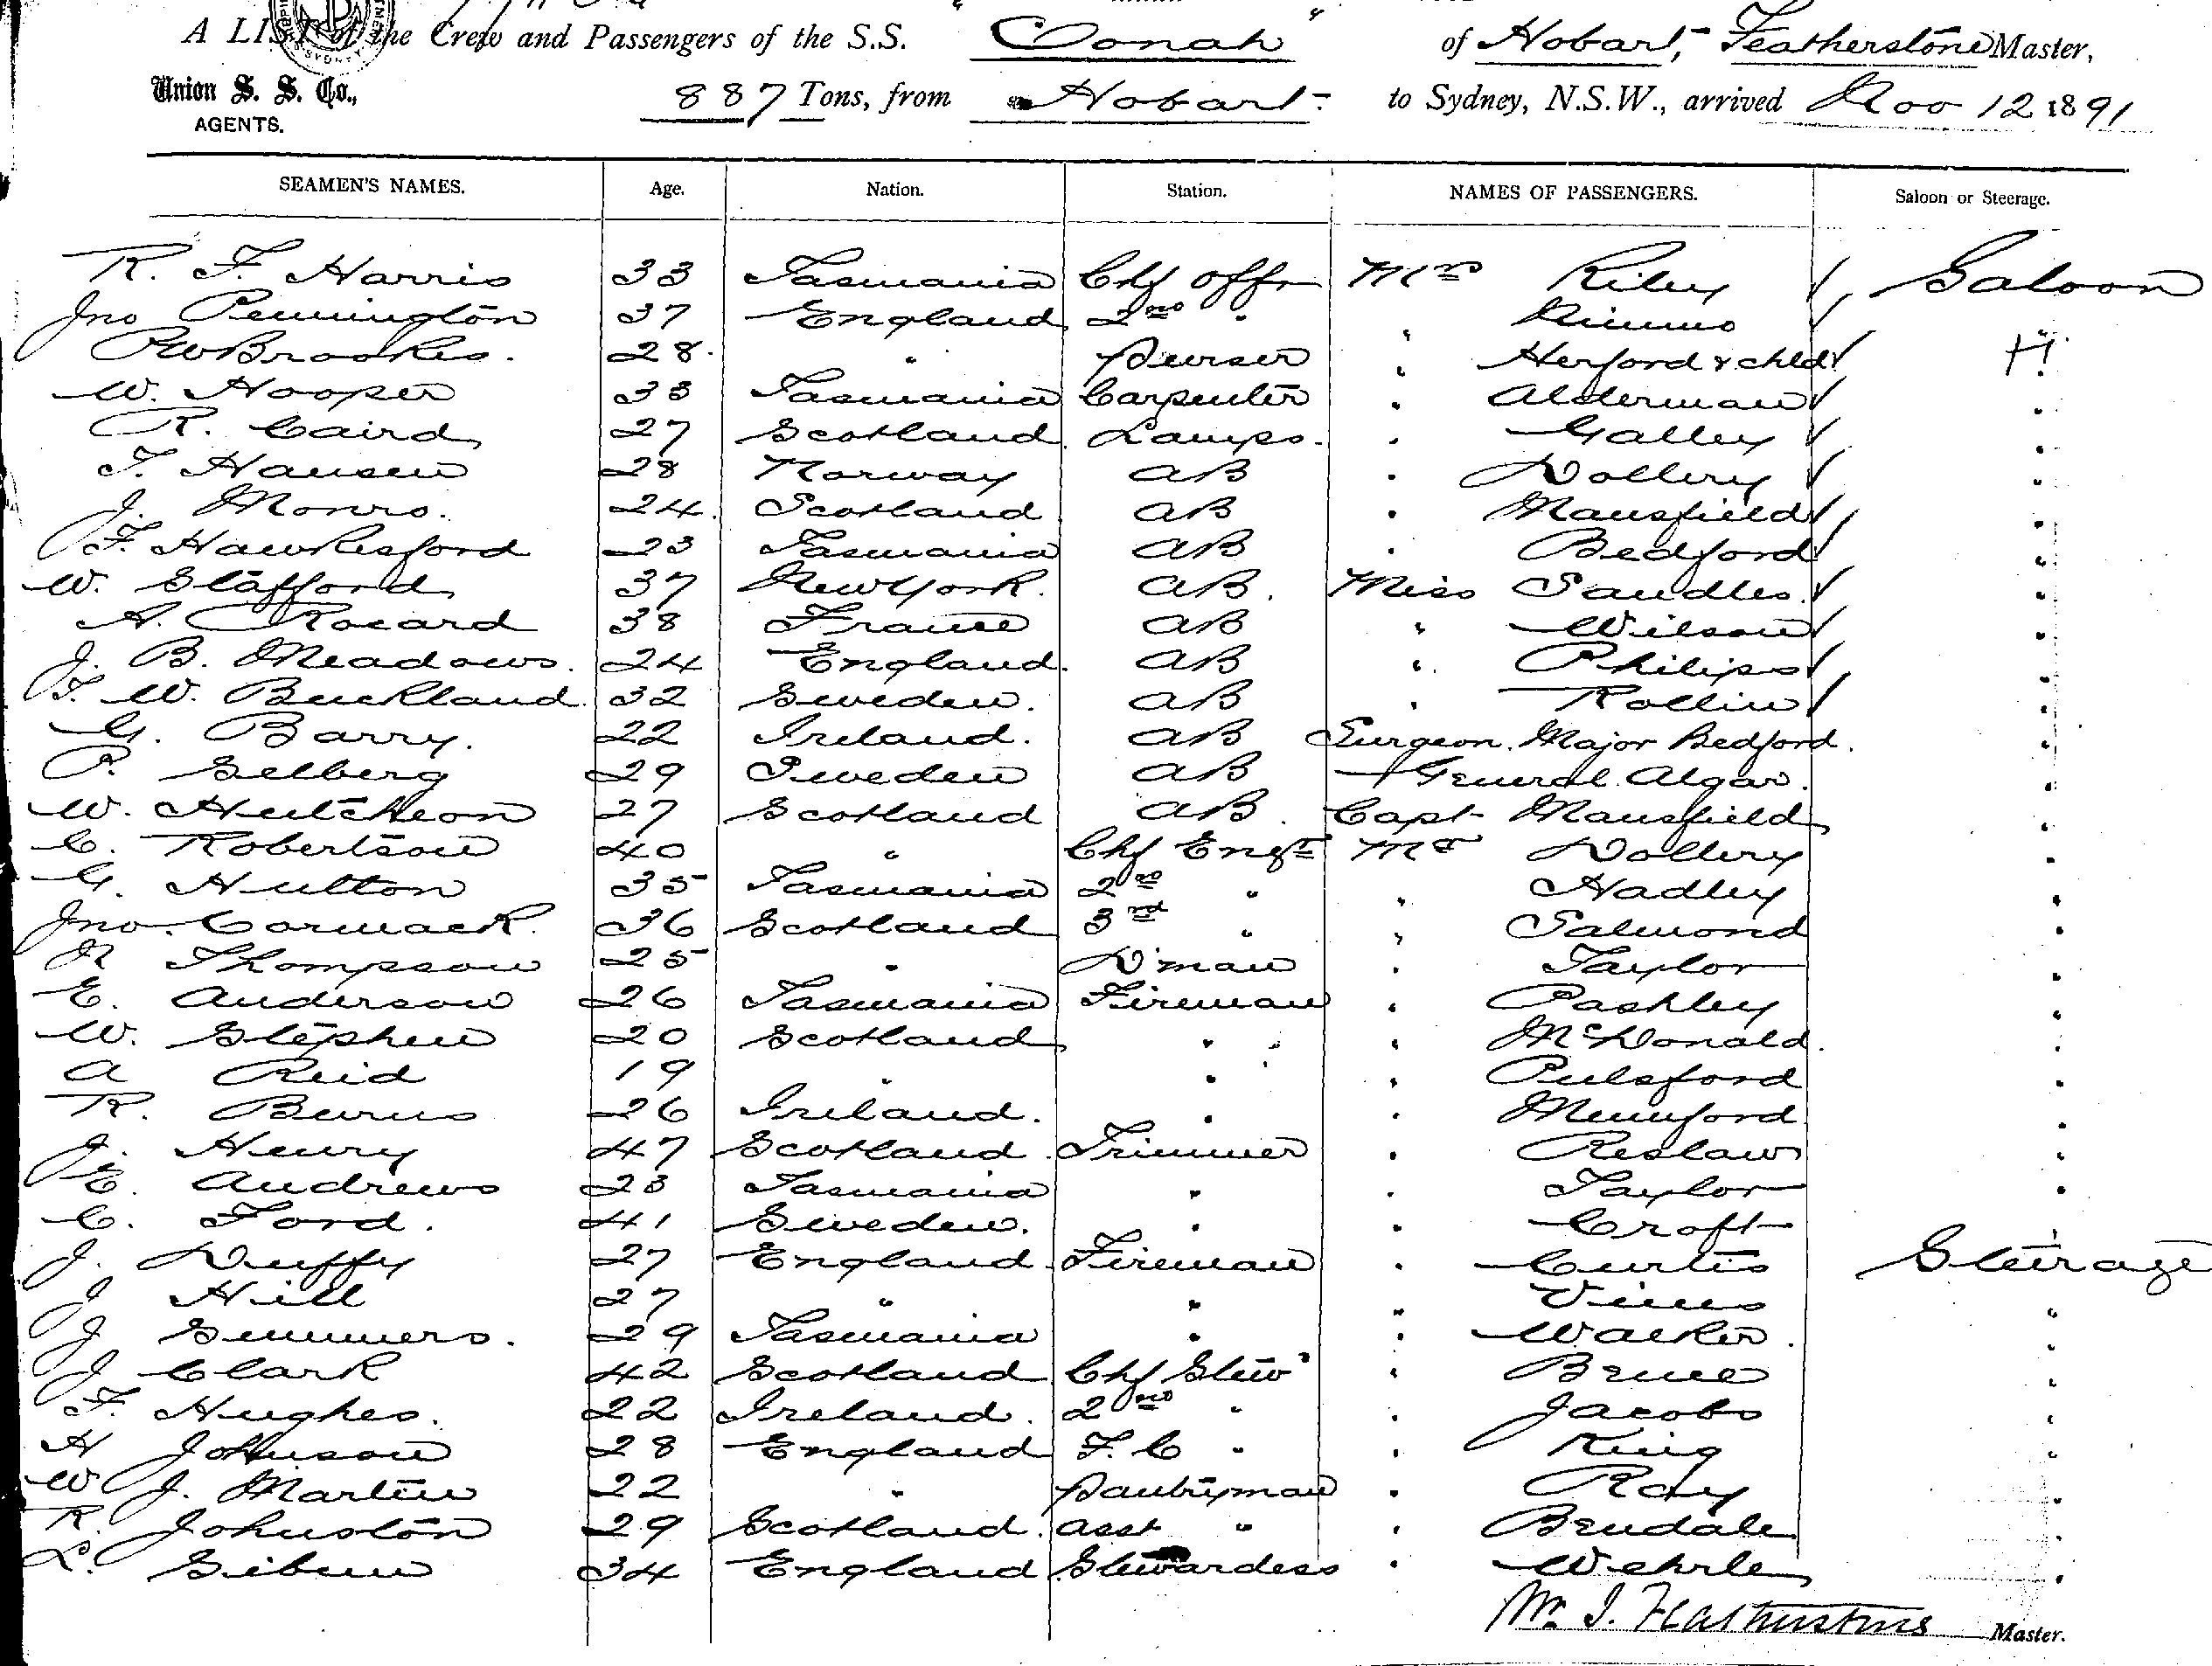 A LIST of the Crew and Passengers of the S.S. Oonah of Hobart, Featherstone Master,
Union S. S. Co.,
AGENTS.
887 Tons, from Hobart to Sydney, N.S.W., arrived Nov 12 1891
SEAMEN'S NAMES. Age. Nation. Station. NAMES OF PASSENGERS. Saloon or Steerage.
R. F. Harris 33 Tasmania Chf Offr Mrs Riley Saloon
Jno Pennington 37 England 2nd " " Nimmo
RW Brookes. 28 " Purser " Herford & chld "
W. Hooper 33 Tasmania Carpenter " Alderman "
R. Caird 27 Scotland Lamps. " Galley "
T. Hansen 28 Norway AB " Dollery "
J. Monro. 24 Scotland AB " Mansfield "
F. Hawkesford 23 Tasmania AB " Bedford "
W. Stafford 37 New York. AB. Miss Sandles "
A. Rocard 38 France AB " Wilson "
J. B. Meadows. 24 England. AB " Philips "
T. W. Buckland. 32 Sweden. AB " Rollin "
G. Barry. 22 Ireland. AB Surgeon Major Bedford. "
P. Selberg 29 Sweden AB General Algar. "
W. Hutcheon 27 Scotland AB. Capt Mansfield "
C. Robertson 40 " Chf Engr Mr Dollery "
G. Hutton 35 Tasmania 2nd " " Hadley "
Jno. Cormack. 36 Scotland 3rd " " Salmond "
R Thompson 25 " D'man " Taylor "
E. Anderson 26 Tasmania Fireman " Pashley "
W. Stephen 20 Scotland " " McDonald. "
A Reid 19 " " " Pulsford "
R. Burns 26 Ireland. " " Mumford "
J. Henry 47 Scotland. Trimmer " Reslaw "
E. Andrews 23 Tasmania " " Taylor "
C. Ford. 41 Sweden. " " Croft "
J. Duffy 27 England. Fireman " Curtis Steerage
J Hill 27 " " " Vines "
J Summers. 29 Tasmania " " Walker. "
J Clark 42 Scotland Chf Stew' " Bruce "
F. Hughes. 22 Ireland. 2nd " " Jacobs "
H Johnson 28 England F. C " " King "
W J. Martin 22 " Pantryman " Ray "
R. Johnston 29 Scotland. Asst " " Brudale "
L. Gibun 34 England Stewardess " Wehrle "
Master.